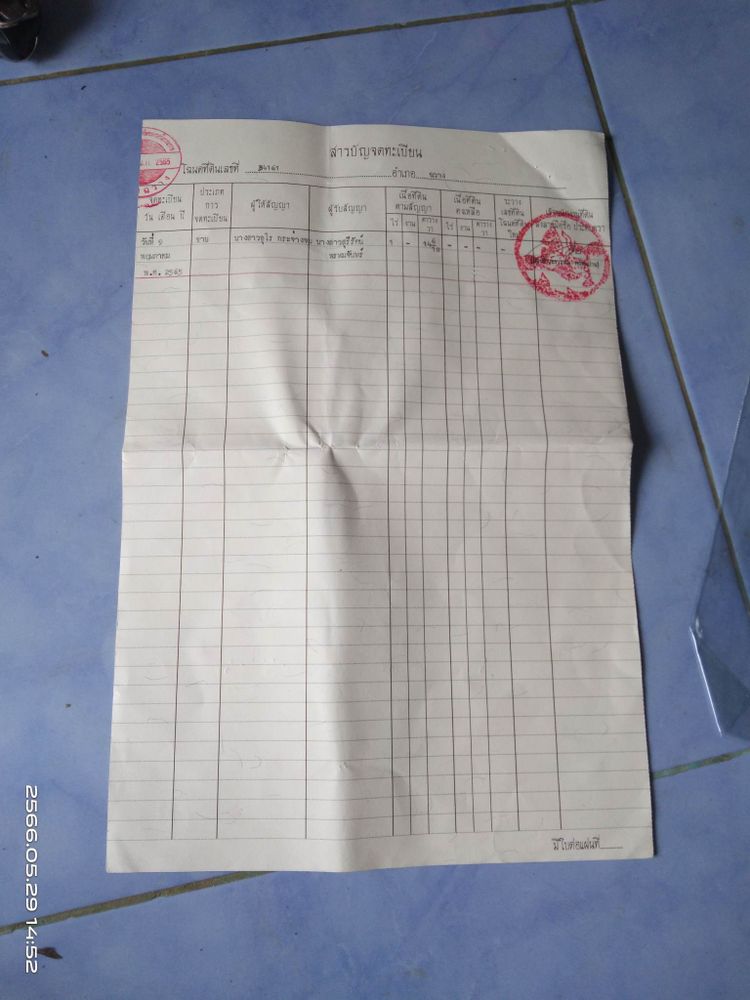 สารบัญจดทะเบียน
โฉนดที่ดินเลขที่ อำเภอ ขวาง
จดทะเบียน
วัน เดือน ปี
ประเภท
การ
จดทะเบียน
ผู้ให้สัญญา
ผู้รับสัญญา
เนื้อที่ดิน
ตามสัญญา
ไร่ งาน ตาราง
วา
เนื้อที่ดิน
คงเหลือ
ไร่ งาน ตาราง
วา
ระวาง
เลขที่ดิน
โฉนดที่ดิน
ใหม่
เจ้าพนักงานที่ดิน
วันที่ ๑ ขาย นางสาวอุไร นางสาวสุรีรัตน์ 1 - - - - -
พฤษภาคม
พ.ศ. 2565
2565
มีใบต่อแผ่นที่
2566.05.29 14:52